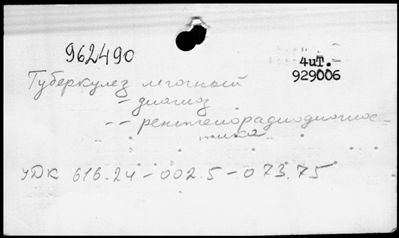 962490
4иТ.-
929006
Туберкулез легочный
- диагноз
-- рентгенорадиодиагнос-
тика
УДК 616.24-002.5-073.75